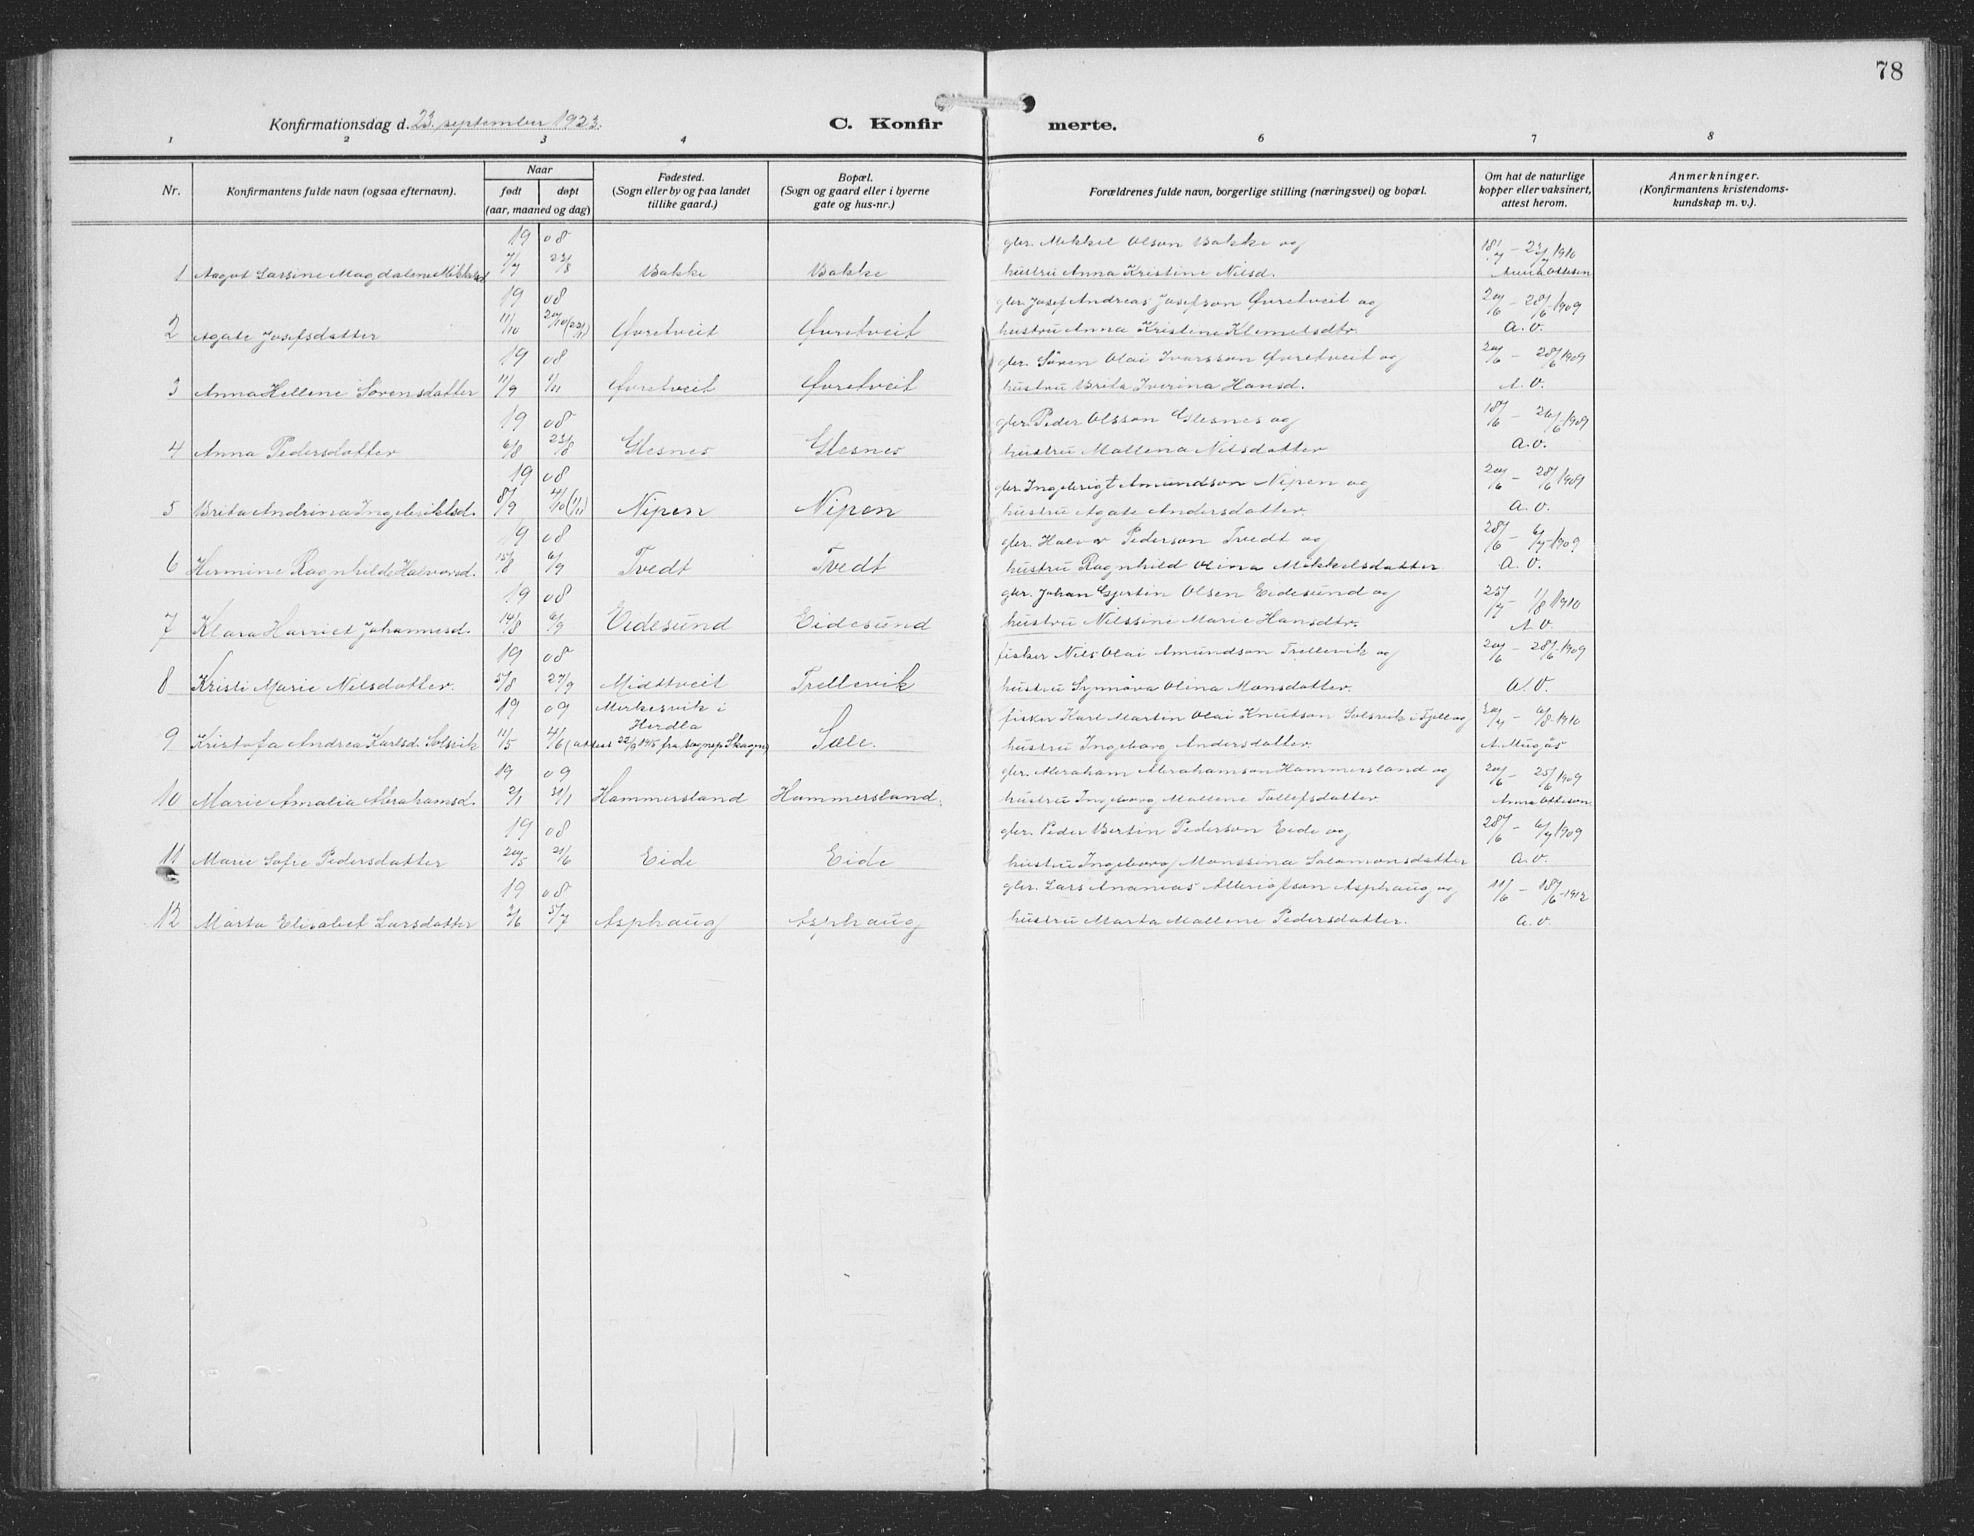 78
Konfirmationsdag d. 23. september 1923.
C. Konfir merte.
1 2 3 4 6 7 8
Nr. Konfirmantens fulde navn (ogsaa efternavn). Naar født døpt (aar, maaned og dag) Fødested. (Sogn eller by og paa landet tillike gaard.) Bopæl. (Sogn og gaard eller i byerne gate og hus-nr.) Forældrenes fulde navn, borgerlige stilling (næringsvei) og bopæl. Om hat de naturlige kopper eller vaksinert, attest herom. Anmerkninger. (Konfirmantens kristendoms- kundskap m. v.).
19 08 gbr. Mikkel Olson Bakke og
1 Aagot Larsine Magdalene Mikkelsd. 7/7 23/8 Bakke Bakke hustru Anna Kristine Nilsd. Anna Otteson
19 08 gbr. Josef Andreas Josefson Øvretveit og 20/6 – 28/6 1909
2 Agate Josefsdatter 11/10 Øvretveit Øvretveit hustru Anna Kristene Klemetsdtr. A. O.
19 08 gbr. Søren Olai Ivarsson Øvretveit og 20/6 – 28/6 1909
3 Anna Hellene Sørensdatter 11/9 1/11 Øvretveit Øvretveit hustru Brita Iverina Hansd. A. O.
19 08 gbr. Peder Olsson Glesnes og 18/6 – 26/6 1909
4 Anna Pedersdatter 6/8 23/8 Glesnes Glesnes hustru Mallena Nilsdatter A. O.
19 08 gbr. Ingebrigt Amundson Nipen og 20/6 – 28/6 1909
5 Brita Andrina Ingebriktsd. 8/9 4/10 (1/11) Nipen Nipen hustru Agate Andersdatter. A. O.
19 08 gbr. Halvor Pederson Tvedt og 28/6 – 6/7 1909
6 Hermine Ragnhilde Halvorsd. 15/8 6/9 Tvedt Tvedt hustru Ragnhild Olina Mikkelsdatter A. O.
19 08 gbr. Johan Gjertin Olsen Eidesund og 25/7 – 1/8 1910
7 Klara Harriet Johannesd. 14/8 6/9 Eidesund Eidesund hustru Nilssine Marie Hansdtr. A. O.
19 08 fisker Nils Olai Amundson Trellevik og 20/6 – 28/6 1909
8 Kristi Marie Nilsdatter. 5/8 27/9 Midttveit Trellevik hustru Synnøva Olina Monsdatter. A. O.
19 09 Merkesvik i Herdla fisker Karl Martin Olai Knutson Solsvik i Fjell og 6/8 1910
9 Kristofa Andrea Karlsd. Solsvik 11/5 4/6 (attest 22/9 1915 fra sognep. Skagen) Sæle. hustru Ingeborg Andersdatter. A. Mugås
19 09 gbr. Abraham Abrahamson Hammersland og 20/6 – 25/6 1909
10 Marie Amalia Abrahamsd. 2/1 31/1 Hammersland Hammersland. hustru Ingeborg Mallene Tollefsdatter Anna Otteson
19 08 gbr. Peder Bertin Pederson Eide og 28/6 – 6/7 1909
11 Marie Sofie Pedersdatter 20/5 21/6 Eide Eide hustru Ingeborg Monssina Salamonsdatter A. O.
19 08 gbr. Lars Ananias Allerigtson Asphaug og 11/6 – 18/6 1912
12 Marta Elisabet Larsdatter 2/6 5/7 Asphaug Asphaug hustru Marta Mallene Pedersdatter. A. O.